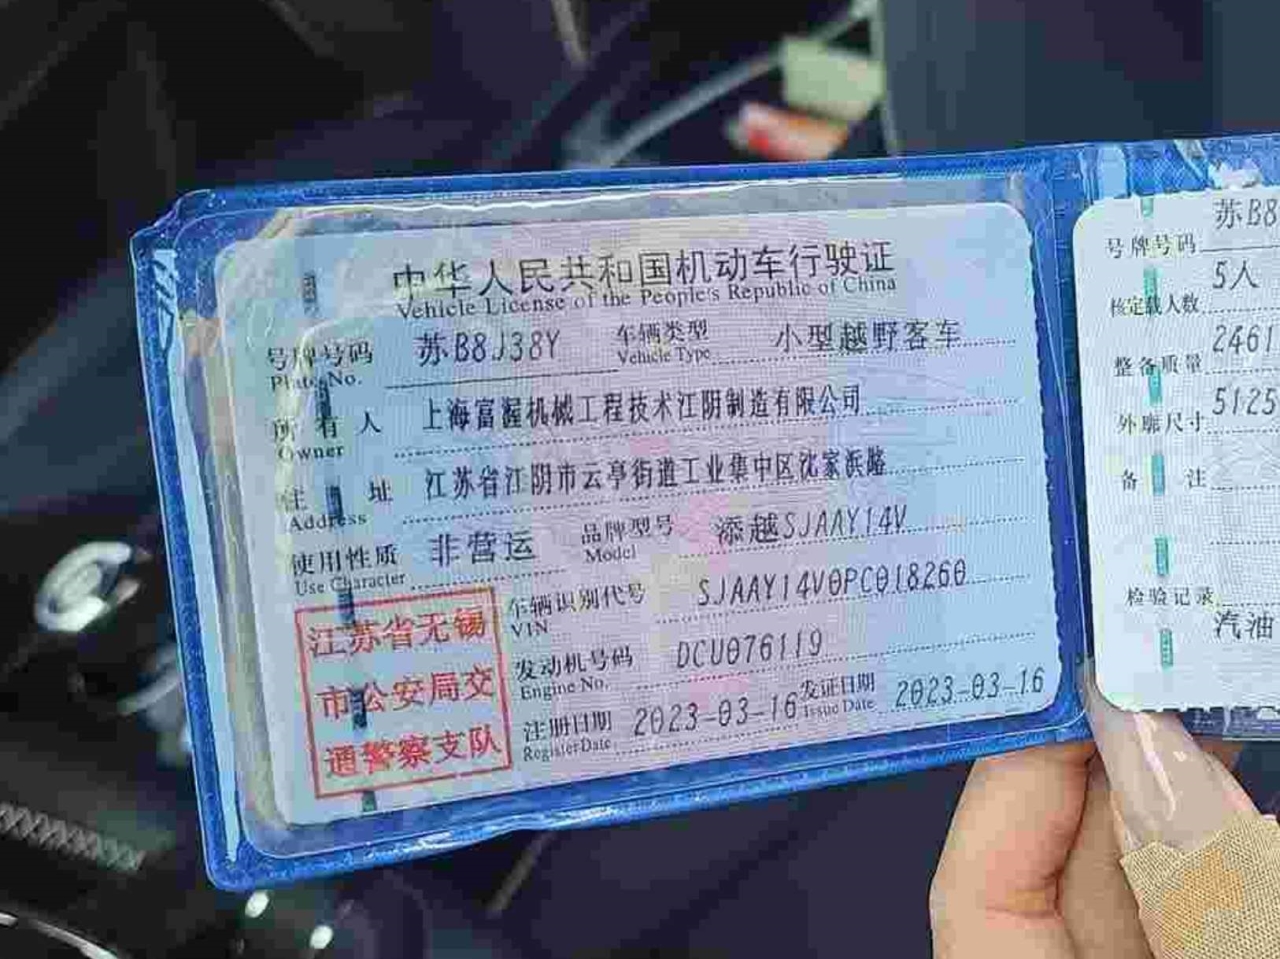 中华人民共和国机动车行驶证
Vehicle License of the People's Republic of China
号牌号码 苏B8J38Y 车辆类型 小型越野客车
Plate No. Vehicle Type
所有人 上海富渥机械工程技术江阴制造有限公司
Owner
住址 江苏省江阴市云亭街道工业集中区沈家浜路
Address
使用性质 非营运 品牌型号 添越SJAAY14V
Use Character Model
车辆识别代号 SJAAY14V0PC018260
VIN
发动机号码 DCU076119
Engine No.
注册日期 2023-03-16 发证日期 2023-03-16
Register Date Issue Date
江苏省无锡
市公安局交
通警察支队
号牌号码 苏B8
核定载人数 5人
整备质量 2461
外廓尺寸 5125
备注
检验记录
汽油